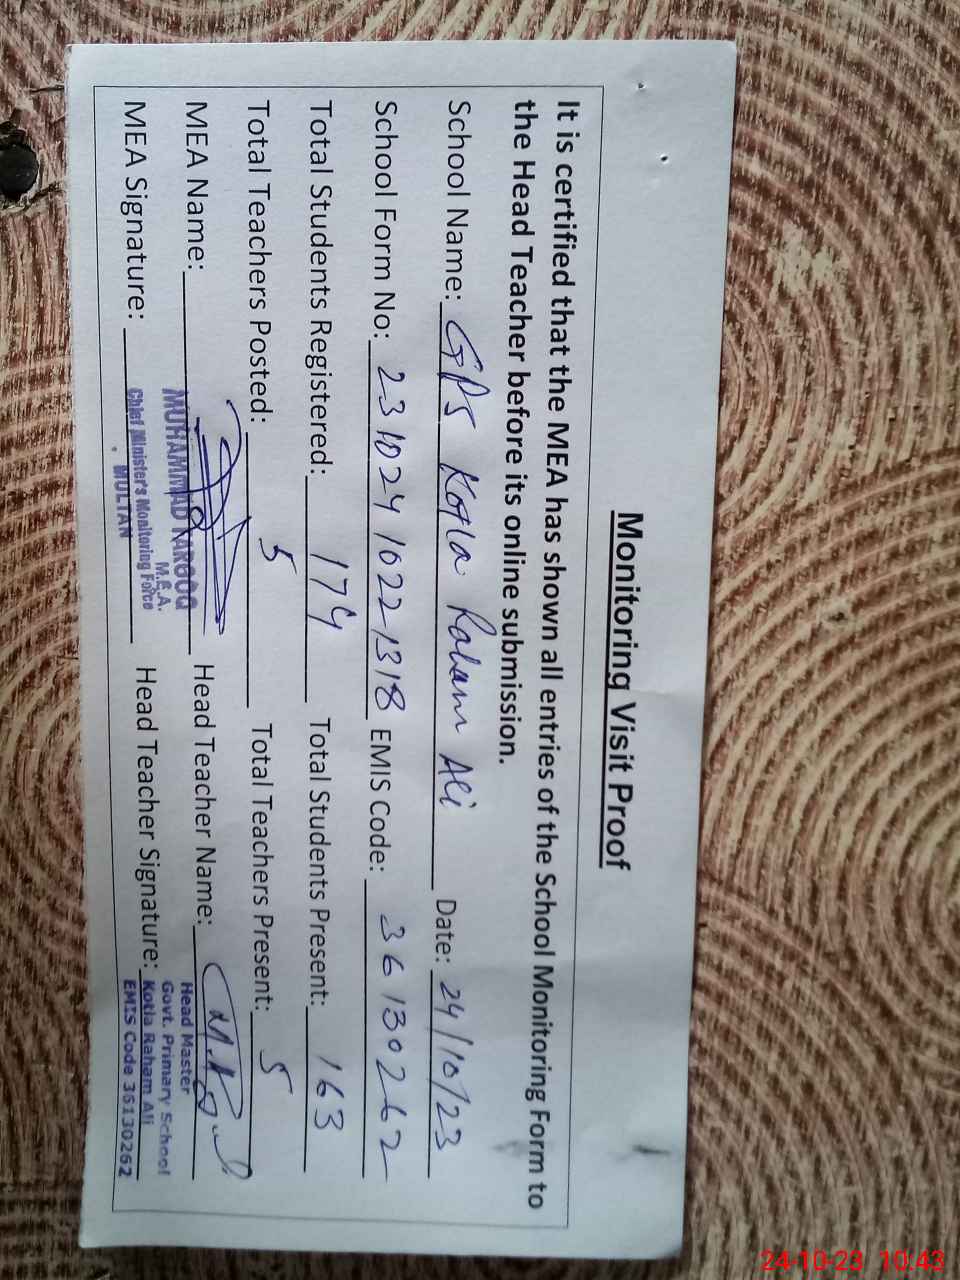 Monitoring Visit Proof
It is certified that the MEA has shown all entries of the School Monitoring Form to
the Head Teacher before its online submission.
School Name: GPS Kotla Raham Ali Date: 24/10/23
School Form No: 23102410221318 EMIS Code: 36130262
Total Students Registered: 174 Total Students Present: 163
Total Teachers Posted: 5 Total Teachers Present: 5
MEA Name: Head Teacher Name:
MEA Signature: Head Teacher Signature:
MUHAMMAD FAROOQ
M.E.A.
Chief Minister's Monitoring Force
MULTAN
Head Master
Govt. Primary School
Kotla Raham Ali
EMIS Code 36130262
24-10-23 10:43